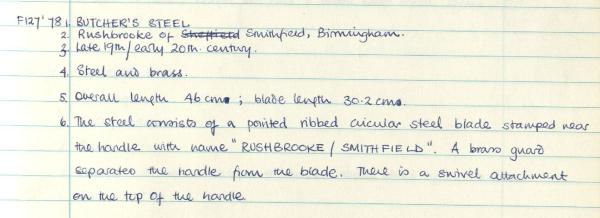 F127'78 1. BUTCHER'S STEEL
2. Rushbrooke of Sheffield Smithfield, Birmingham.
3. Late 19th/early 20th century.
4. Steel and brass.
5. Overall length 46 cms ; blade length 30.2 cms.
6. The steel consists of a pointed ribbed circular steel blade stamped near
the handle with name "RUSHBROOKE / SMITHFIELD". A brass guard
separates the handle from the blade. There is a swivel attachment
on the top of the handle